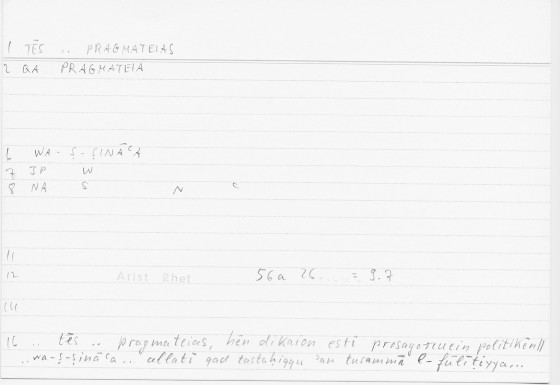 1 TĒS .. PRAGMATEIAS
2 QA PRAGMATEIA
6 WA-Ṣ-ṢINĀʿA
7 JP W
8 NA Ṣ N ʿ
11
12 Arist Rhet 56a 26.... = 9.7
14
16 .. tēs .. pragmateias, hēn dikaion esti prosagoreuein politikēn//
..wa-ṣ-ṣināʿa.. allatī qad tastaḥiqqu ʾan tusammā l-fūlīṭiyya...